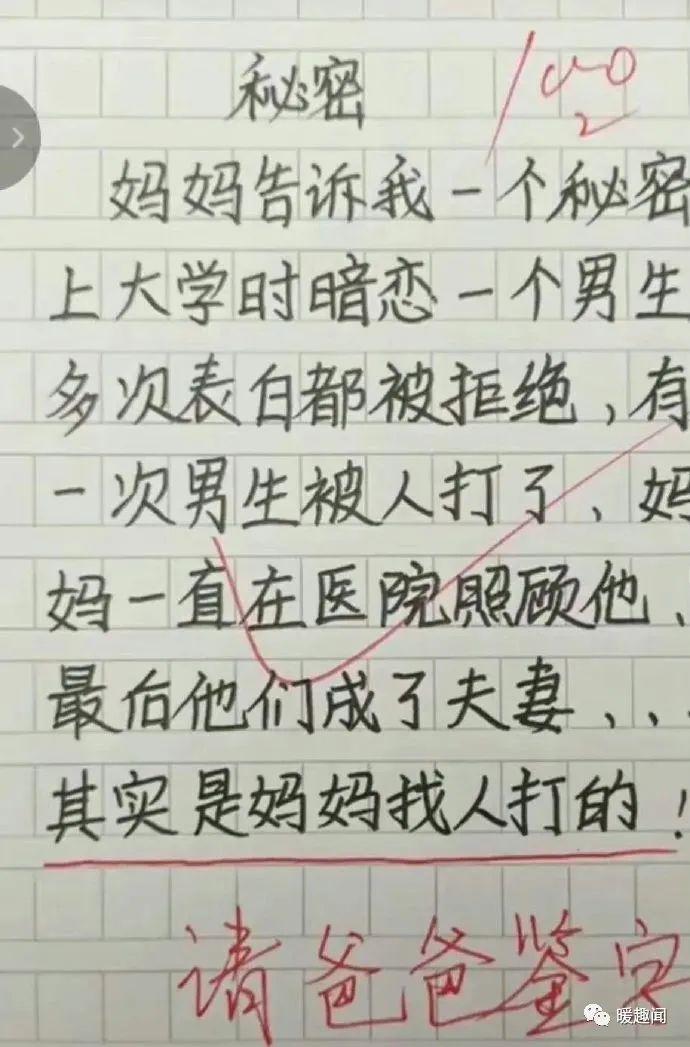 秘密
妈妈告诉我一个秘密
上大学时暗恋一个男生
多次表白都被拒绝，有
一次男生被人打了、妈
妈一直在医院照顾他、
最后他们成了夫妻、、、
其实是妈妈找人打的！
请爸爸鉴定
暖趣闻